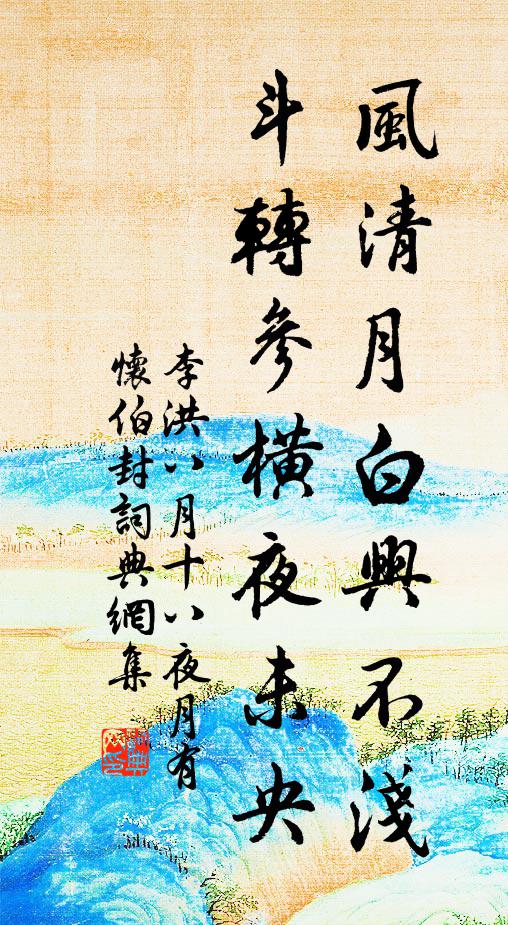 風清月白興不淺
斗轉參橫夜未央
李洪八月十八夜月有
懷伯封詞典網集